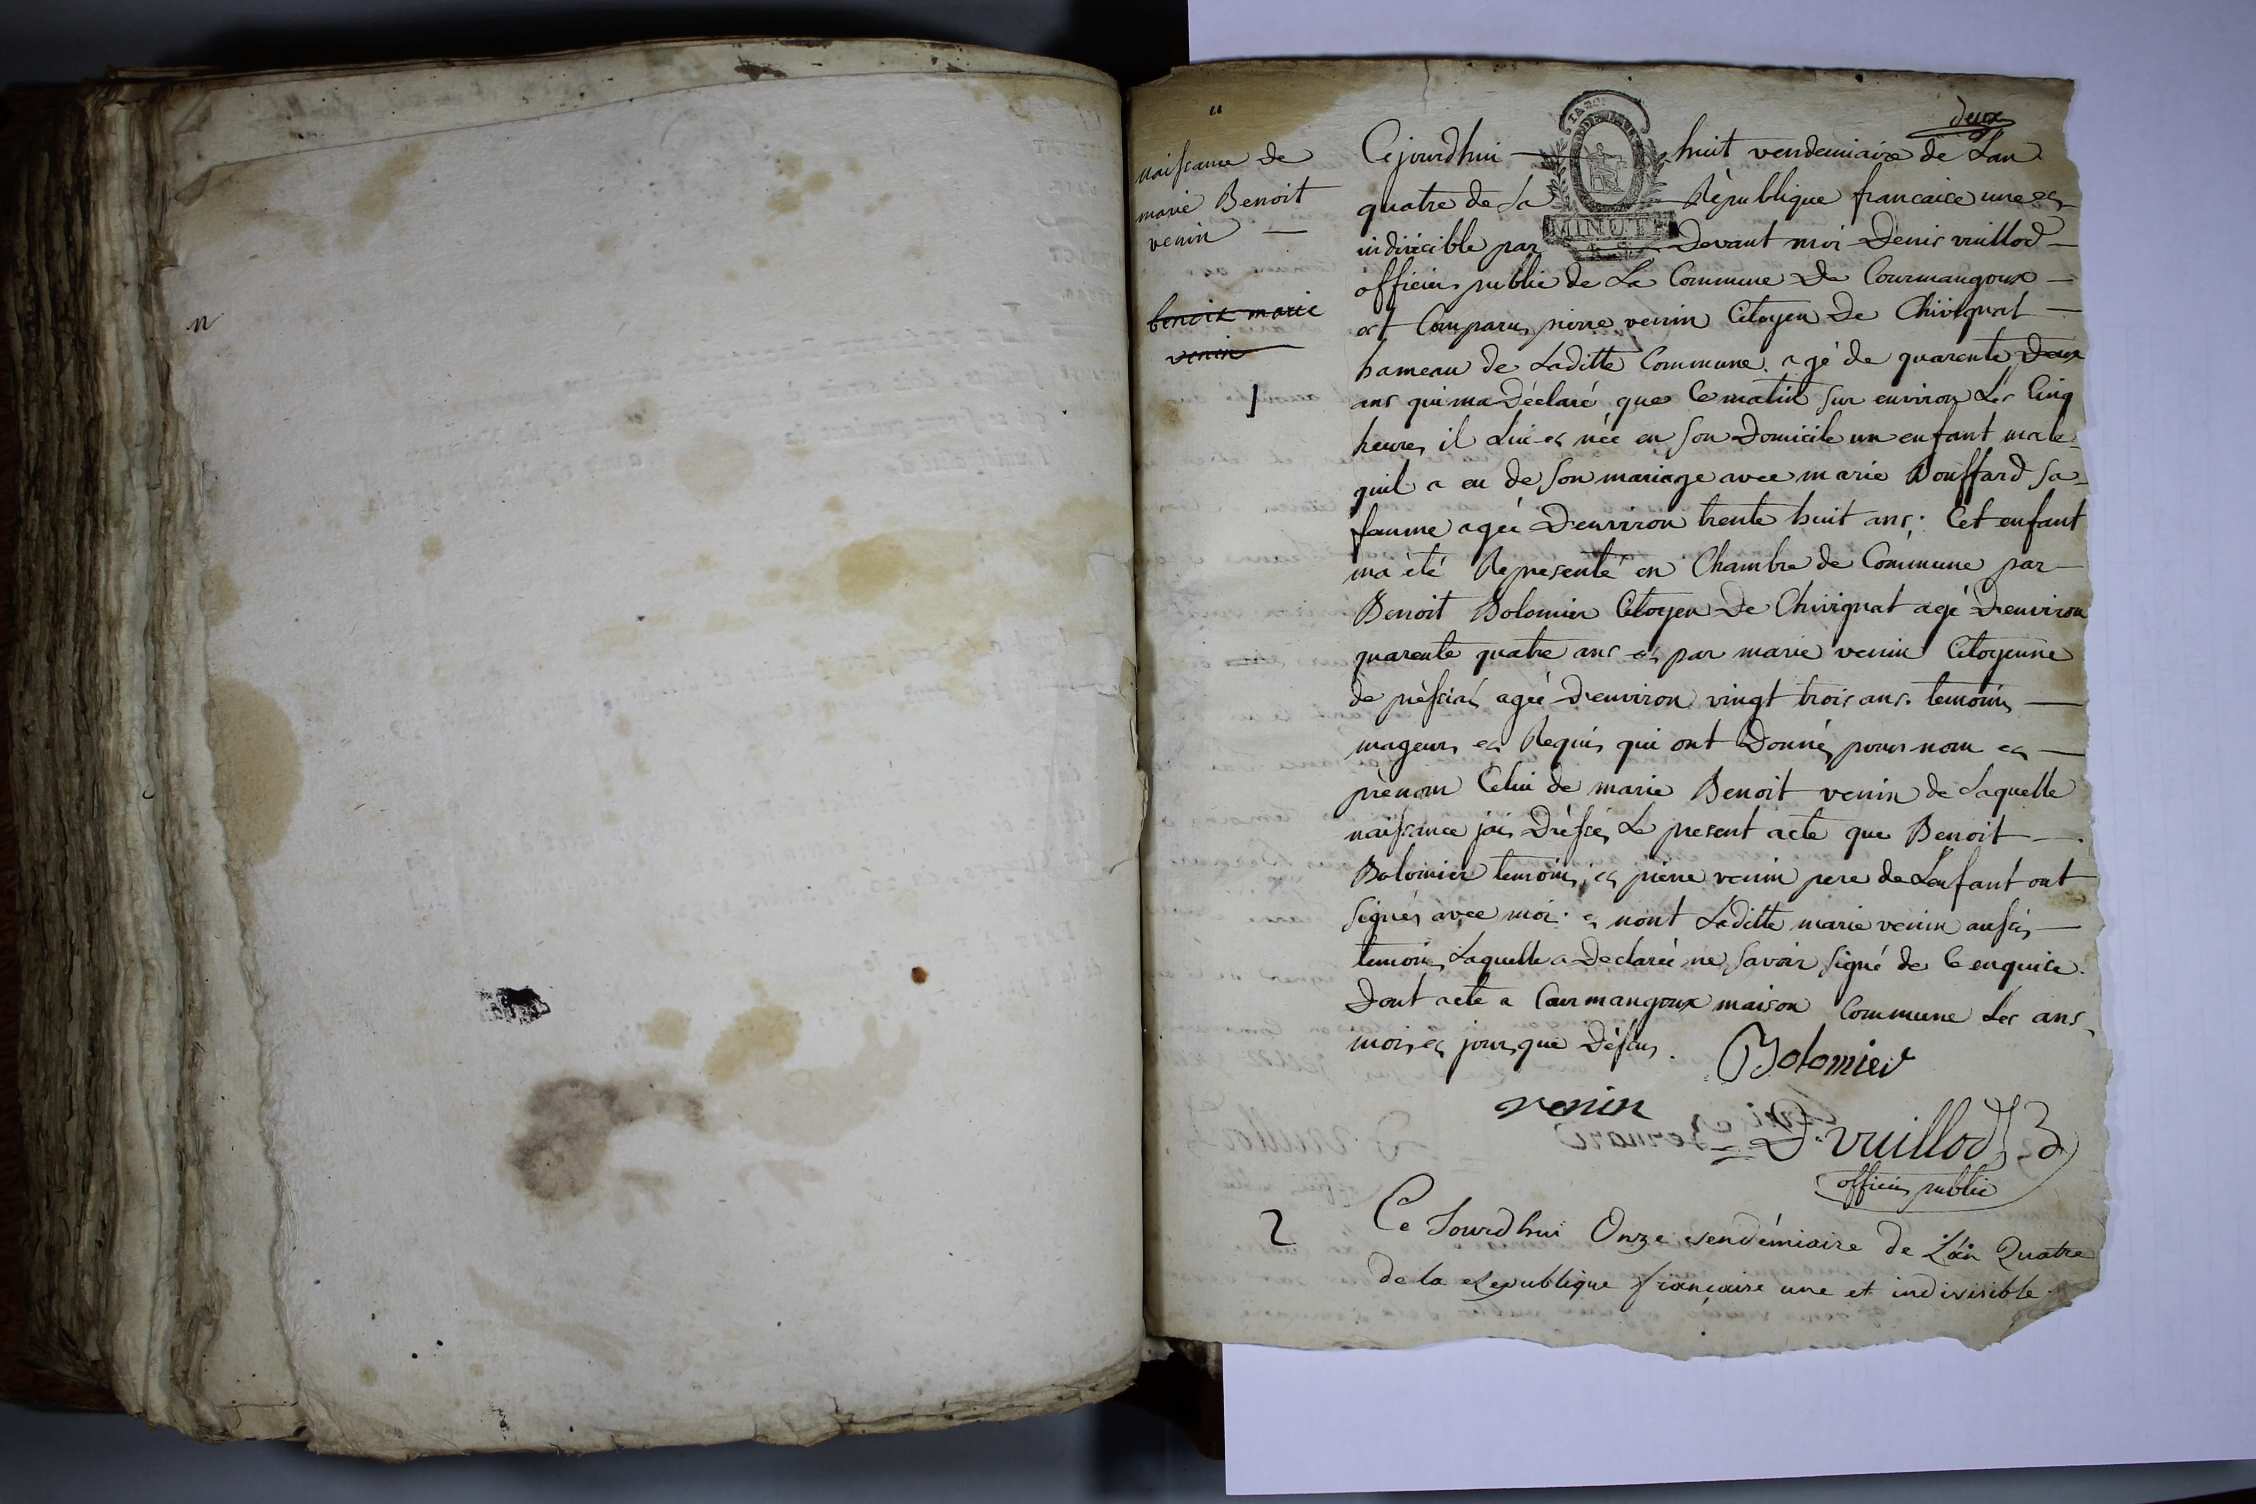 deux
naissance de
marie Benoit
venin —
benoit marie
venin
1
Cejourdhui — huit vendemiaire de Lan
quatre de La République francaice une et
indivicible par Devant moi Denis vuillod —
officier public de La Commune De Courmangoux —
est Comparus pierre venin Citoyen De Chivignat —
hameau de Laditte Commune agé de quarente Deux
ans qui ma Déclaré que Ce matin sur environ Les Cinq
heures il Lui et née en son Domicile un enfant male
quil a eu de son mariage avec marie Bouffard sa
famme agée D'environ trente huit ans. Cet enfant
ma été Representé en Chambre de Commune par —
Benoit Bolomier Citoyen De Chivignat agé D'environ
quarente quatre ans et par marie venin Citoyenne
de pressiat agée D'environ vingt trois ans. temoins —
mageurs et Requis qui ont Donnés pour nom et —
prènom Celui de marie Benoit venin de Laquelle
naissance jai Dréssés Le present acte que Benoit —
Bolomier temoins, et pierre venin pere de Lenfant ont
signés avec moi. et nont Laditte marie venin aussis —
temoins Laquelle a Declarée ne savoir signé de Ce enquise.
Dont acte a Courmangoux maison Commune Les ans,
mois et jours que Déssus.
Bolomier
venin
D. vuillod
officier public
2
Ce Jourdhui Onze vendémiaire de L'an Quatre
de la Republique française une et indivisible